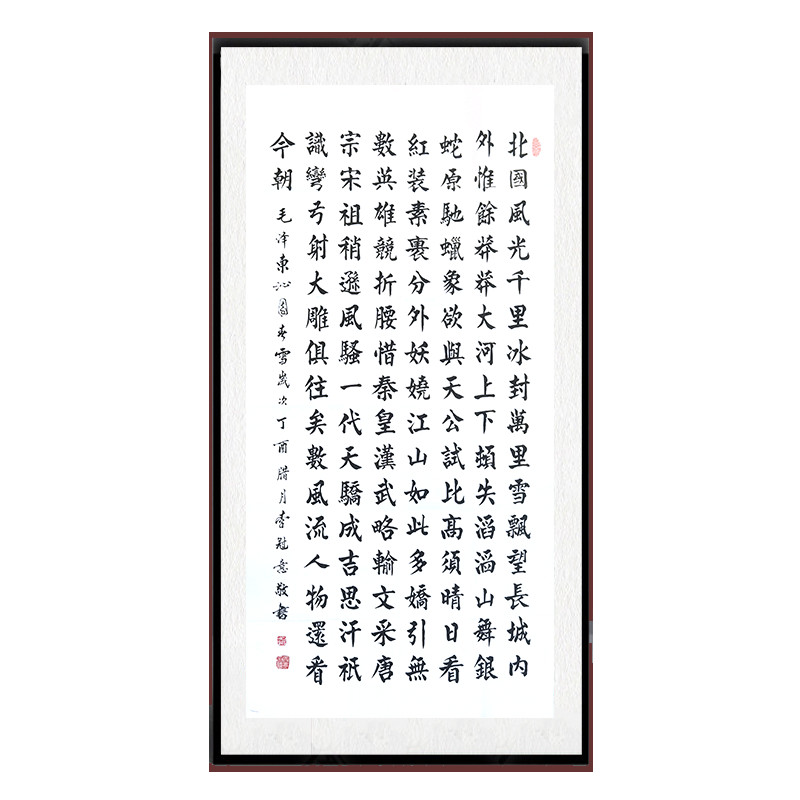 北國風光千里冰封萬里雪飄望長城內
外惟餘莽莽大河上下頓失滔滔山舞銀
蛇原馳蠟象欲與天公試比高須晴日看
紅装素裹分外妖嬈江山如此多嬌引無
數英雄競折腰惜秦皇漢武略輸文采唐
宗宋祖稍遜風騷一代天驕成吉思汗祇
識彎弓射大雕俱往矣數風流人物還看
今朝
毛泽東沁園春雪歲次丁酉腊月李冠意敬書